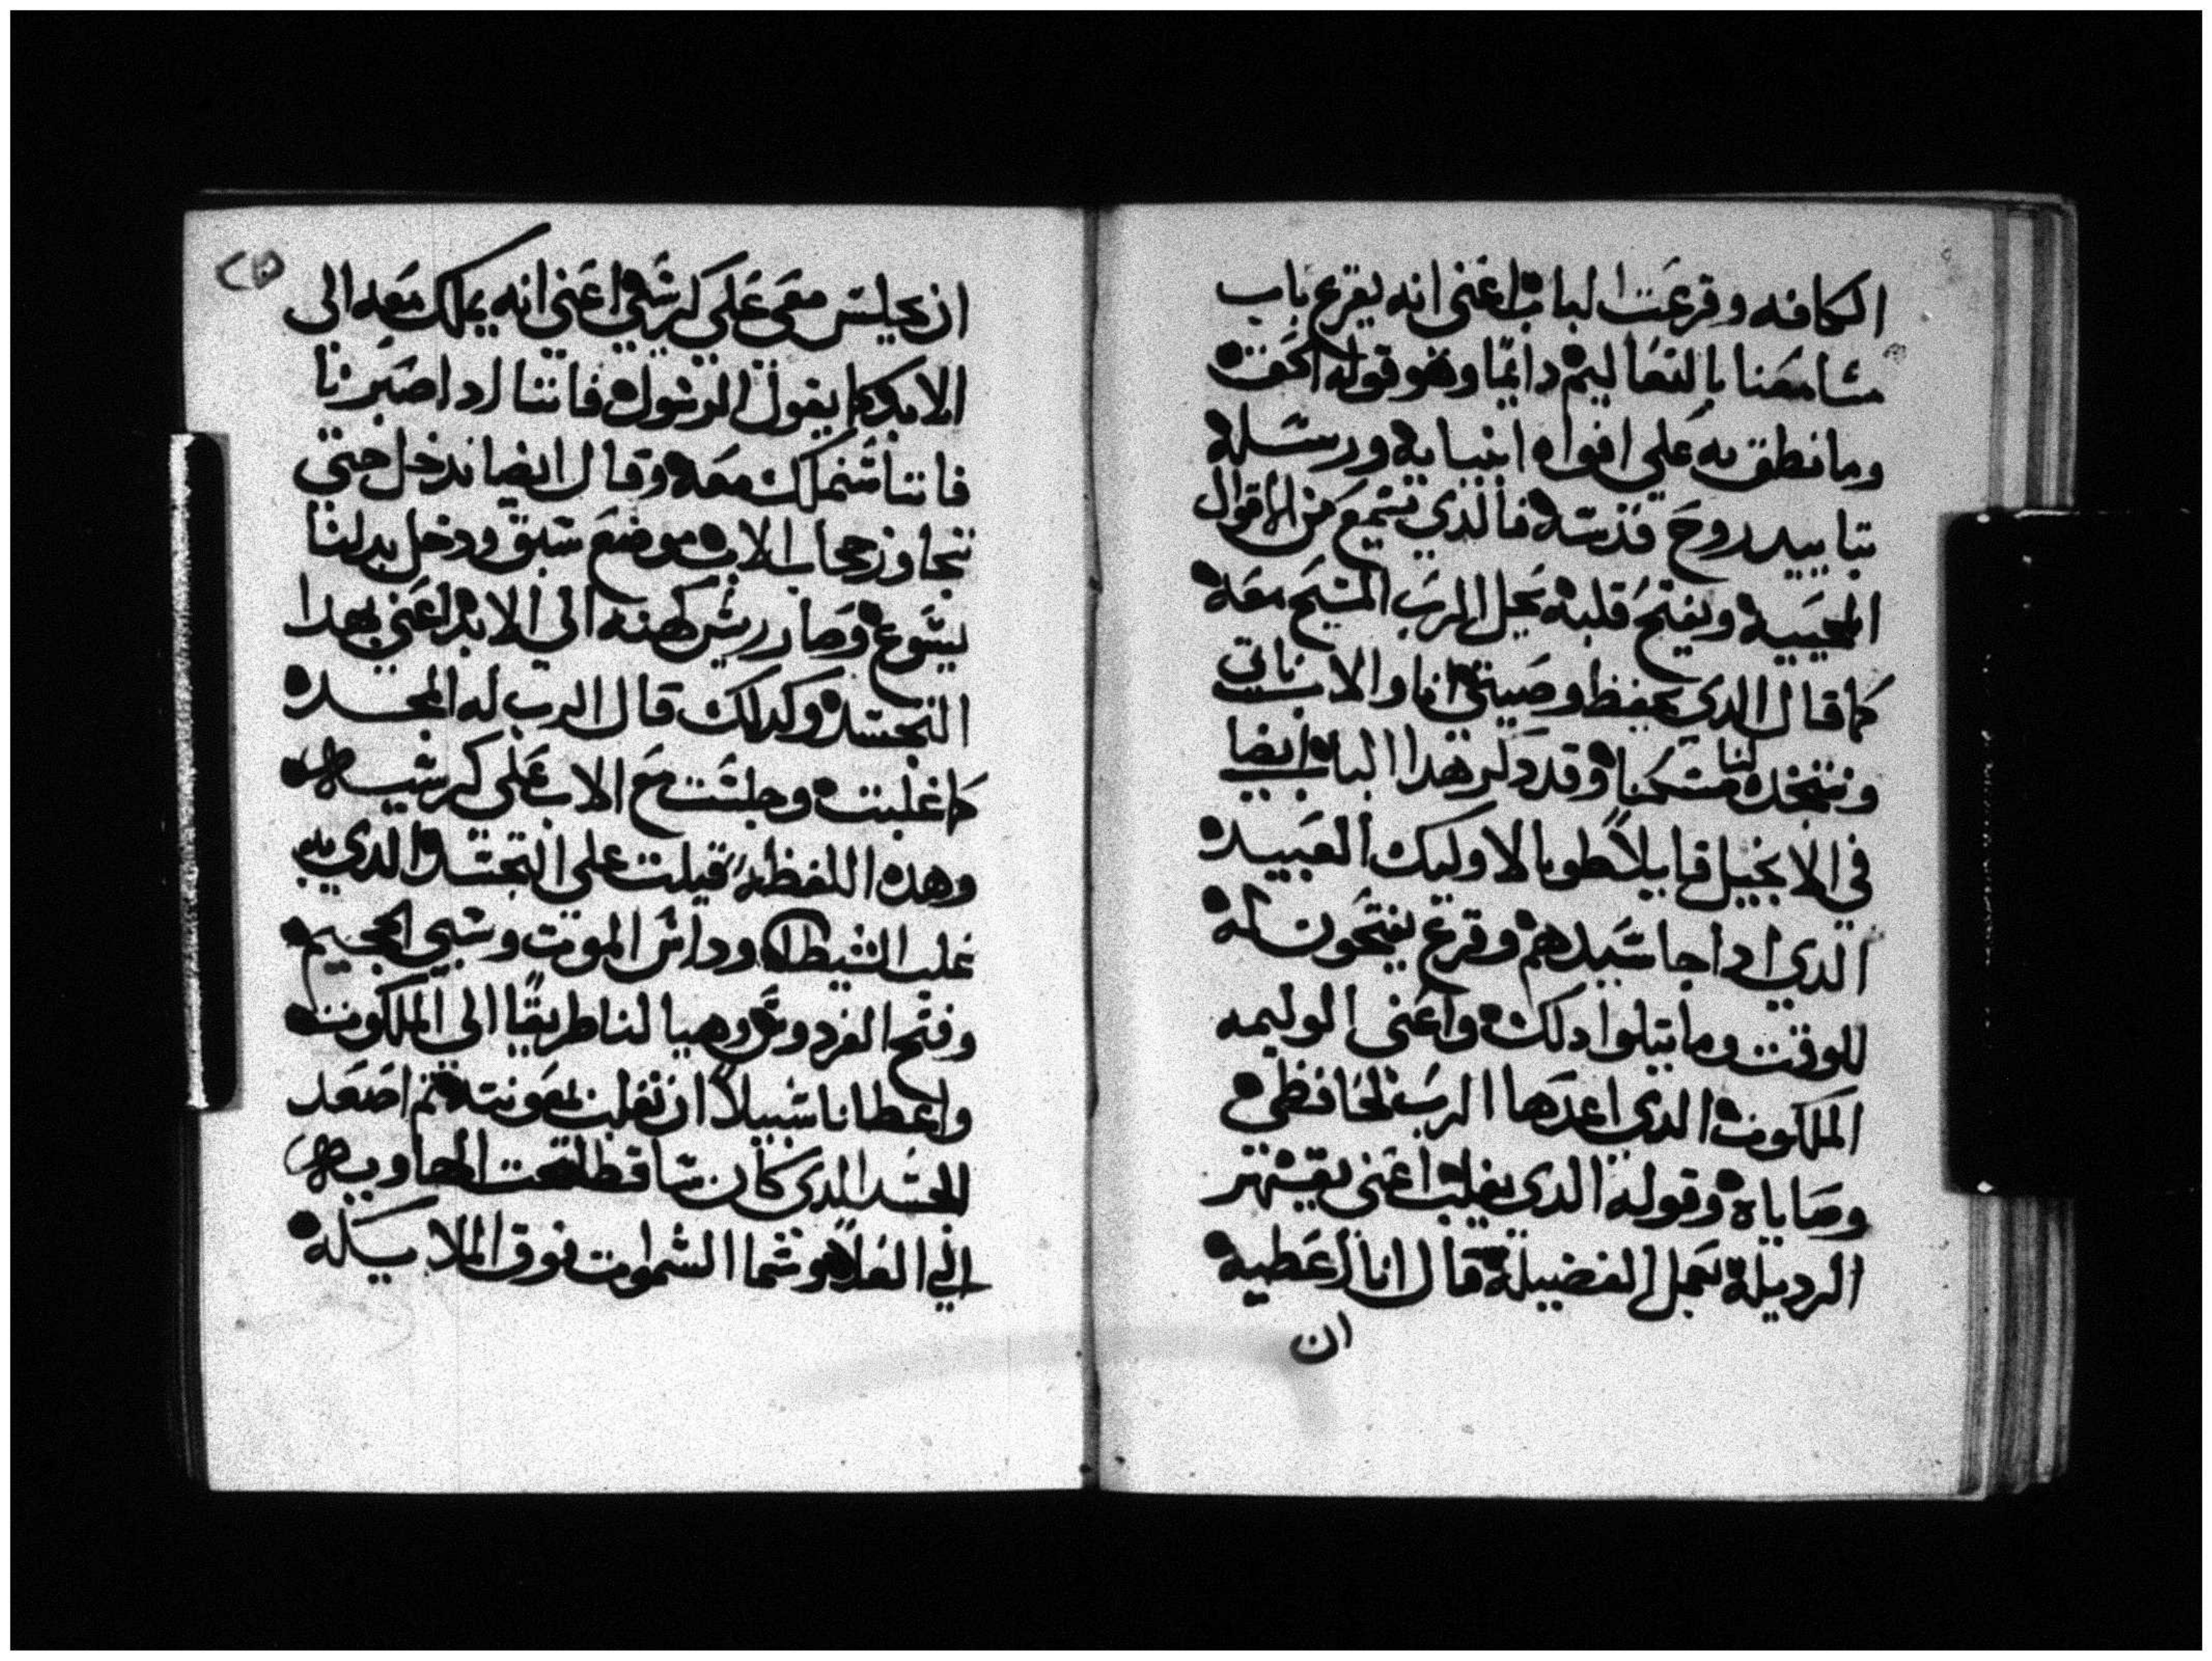 الكافه وقرعت الباب اعني انه يقرع باب
مسامعنا بالتعاليم دايمًا وهو قوله الحق
وما نطق به علي افواه انبيايه ورسله
بتاييد روح قدسه فالذي يسمع من الاقوال
المحييه ويفتح قلبه يحل الرب المسيح معه
كما قال الدي يحفظ وصيتي انا والاب ناتي
ونتخد لنا مسكنا وقد دكر هدا الباب ايضا
في الانجيل قايلاً طوبا لاوليك العبيد
الدي ادا جا سيدهم وقرع يفتحون له
للوقت وما يتلوا دلك واعني الوليمه
الملكوت الدي اعدها الرب لحافظي
وصاياه وقوله الدي يغلب اعني يقهر
الرديلة بعمل الفضيلة قال انا اعطيه
ان
٢٥
ان يجلس معي علي كرسي اعني انه يملك معه الي
الابد كما يقول الرسول فاننا ادا صبرنا
فاننا سنملك معه وقال ايضا ندخل حتي
نتجاوز حجاب الاب موضع سبق ودخل بدلنا
يسوع وصار ريس كهنه الي الابد اعني بهدا
التجسد وكدلك قال الرب له المجد
كما غلبت وجلست مع الاب علي كرسيه
وهده اللفظه قيلت علي التجسد الدي به
غلب الشيطان وداس الموت وسبي الجحيم
وفتح الفردوس وهيا لنا طريقًا الي الملكوت
واعطانا سبيلاً ان نغلب بمعونته تم اصعد
الجسد الدي كان ساقط تحت الهاويه
الي العلا هو سما السموات فوق الملايكه